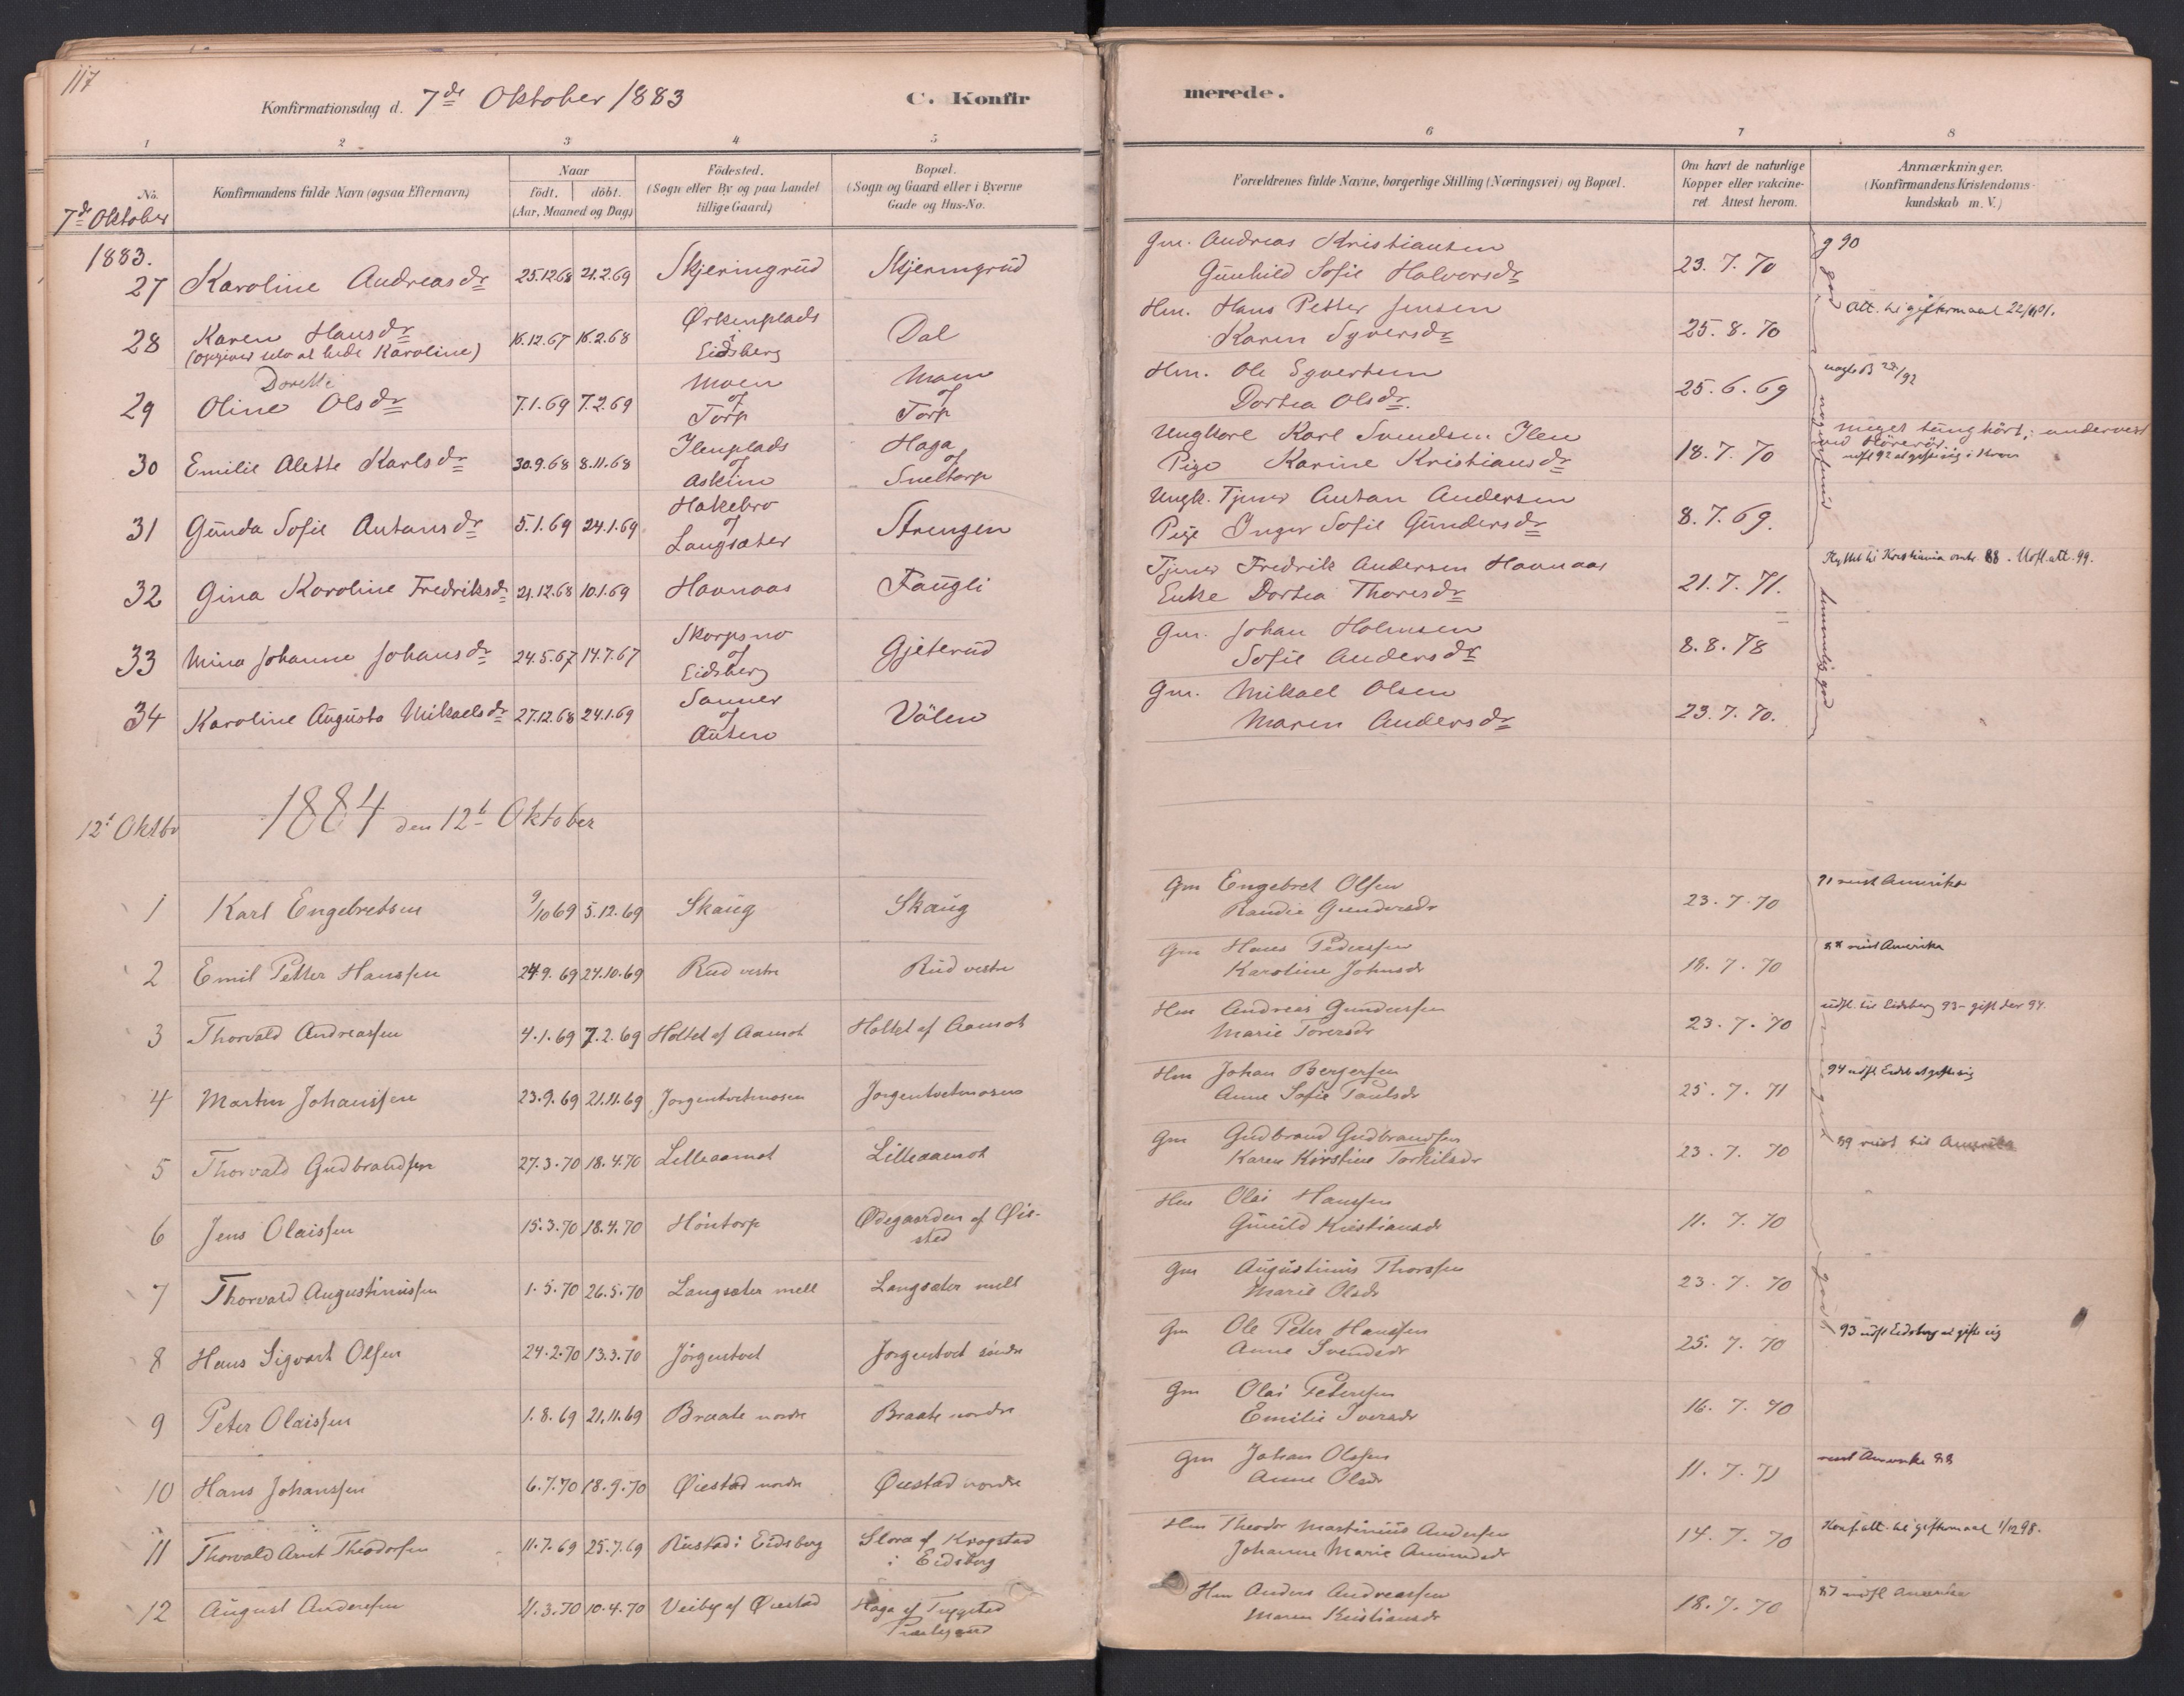 117
Konfirmationsdag d. 7de Oktober 1883
C. Konfirmerede.
1 2 3 4 5 6 7 8
No. Konfirmandens fulde Navn (ogsaa Efternavn) Naar födt. döbt. (Aar, Maaned og Dag) Födested. (Sogn eller By og paa Landet tillige Gaard) Bopæl. (Sogn og Gaard eller i Byerne Gade og Hus-No. Forældrenes fulde Navne, borgerlige Stilling (Næringsvei) og Bopæl. Om havt de naturlige Kopper eller vakcineret. Attest herom. Anmærkninger. (Konfirmandens Kristendomskundskab m. V.)
7de Oktober
1883.
27 Karoline Andreasdr 25.12.68 21.2.69 Skjeringrud Skjeringrud Gm. Andreas Kristiansen 23.7.70 g 90
Gunhild Sofie Halvorsdr
god
28 Karen Hansdr 16.12.67 16.2.68 Örkenplads i Eidsberg Dal Hm. Hans Petter Jensen 25.8.70 Att. til giftermaal
(opgiver selv at hede Karoline) Karen Syversdr
29 Oline Dorette Olsdr 7.1.69 7.2.69 Moen af Torp Moen af Torp Hm. Ole Syversen 25.6.69
Dortea Olsdr.
30 Emilie Alette Karlsdr 30.9.68 8.11.68 Ilenplads af Askim Haga af Sneltorp Ungkarl Karl Svendsen Ilen 18.7.70 meget tunghört; undervist ved Hörerör.
Pige Karine Kristiansdr
31 Gunda Sofie Antansdr 5.1.69 24.1.69 Hakebro af Langsæter Strengen Ungk. Tjener Antan Andersen 8.7.69.
Pige Inger Sofie Gundersdr
32 Gina Karoline Fredriksdr 21.12.68 10.1.69 Havnaas Faugli Tjener Fredrik Andersen Havnaas 21.7.71. Flyttet til Kristiania omtr. 88. Udfl.att. 99.
Enke Dortea Thoresdr
33 Mina Johanne Johansdr 24.5.67 14.7.67 Skorpsno af Eidsberg Gjeterud Gm. Johan Holmsen 8.8.78
Sofie Andersdr
temmelig god
34 Karoline Augusta Mikaelsdr 27.12.68 24.1.69 Sanner af Auten Völen Gm. Mikael Olsen 23.7.70.
Maren Andersdr
12t Oktbr 1884 den 12t Oktober
1 Karl Engebretsen 9/10 69 5.12.69 Skaug Skaug Gm Engebret Olsen 23.7.70 91 reist Amerika
Randie Gundersdr
2 Emil Petter Hanssen 24.9.69 24.10.69 Rud vestre Rud vestre Gm Hans Pederssen 18.7.70 88 reist Amerika
Karoline Johnsdr
3 Thorvald Andreassen 4.1.69 7.2.69 Holtet af Aamot Holtet af Aamot Hm Andreas Gunderssen 23.7.70 udfl. til Eidsberg 93 - gift der 94
Marie Toresdr
4 Martin Johanssen 23.9.69 21.11.69 Jorgentvetmosen Jorgentvetmosen Hm Johan Bergersen 25.7.71 94 udfl Eidsb at gifte sig
Anne Sofie Paulsdr
5 Thorvald Gudbrandsen 27.3.70 18.4.70 Lilleaamot Lilleaamot Gm Gudbrand Gudbrandsen 23.7.70 89 reist til Amerika
Karen Kirstine Torkilsdr
6 Jens Olaissen 15.3.70 18.4.70 Höntorp Ødegaarden af Øisted Hm Olai Hanssen 11.7.70
Gunild Kristiansdr
7 Thorvald Augustinussen 1.5.70 26.5.70 Langsæter mell Langsæter mell Gm Augustinus Thorssen 23.7.70
Marie Olsdr
god
8 Hans Sigvart Olsen 24.2.70 13.3.70 Jörgentvet Jorgentvet söndre Gm Ole Peter Hanssen 25.7.70 93 udfl Eidsberg at gifte sig
Anne Svendsdr
9 Peter Olaissen 1.8.69 21.11.69 Braate nordre Braate nordre Gm Olai Peterssen 16.7.70
Emilie Iversdr
10 Hans Johanssen 6.7.70 18.9.70 Øiestad nordre Øiestad nordre Gm Johan Olssen 11.7.71 reist Amerika 88
Anne Olsdr
11 Thorvald Arnt Theodorsen 11.7.69 25.7.69 Rustad i Eidsberg Slora af Krogstad i Eidsberg Hm Theodor Martinius Andersen 14.7.70 Konf.att. til giftermaal 1/12 98.
Johanne Marie Amundsdr
12 August Anderssen 11.3.70 10.4.70 Veiby af Øiestad Haga af Trygstad Præstegaard Hm Anders Andreassen 18.7.70 87 udfl Amerika
Maren Kristiansdr